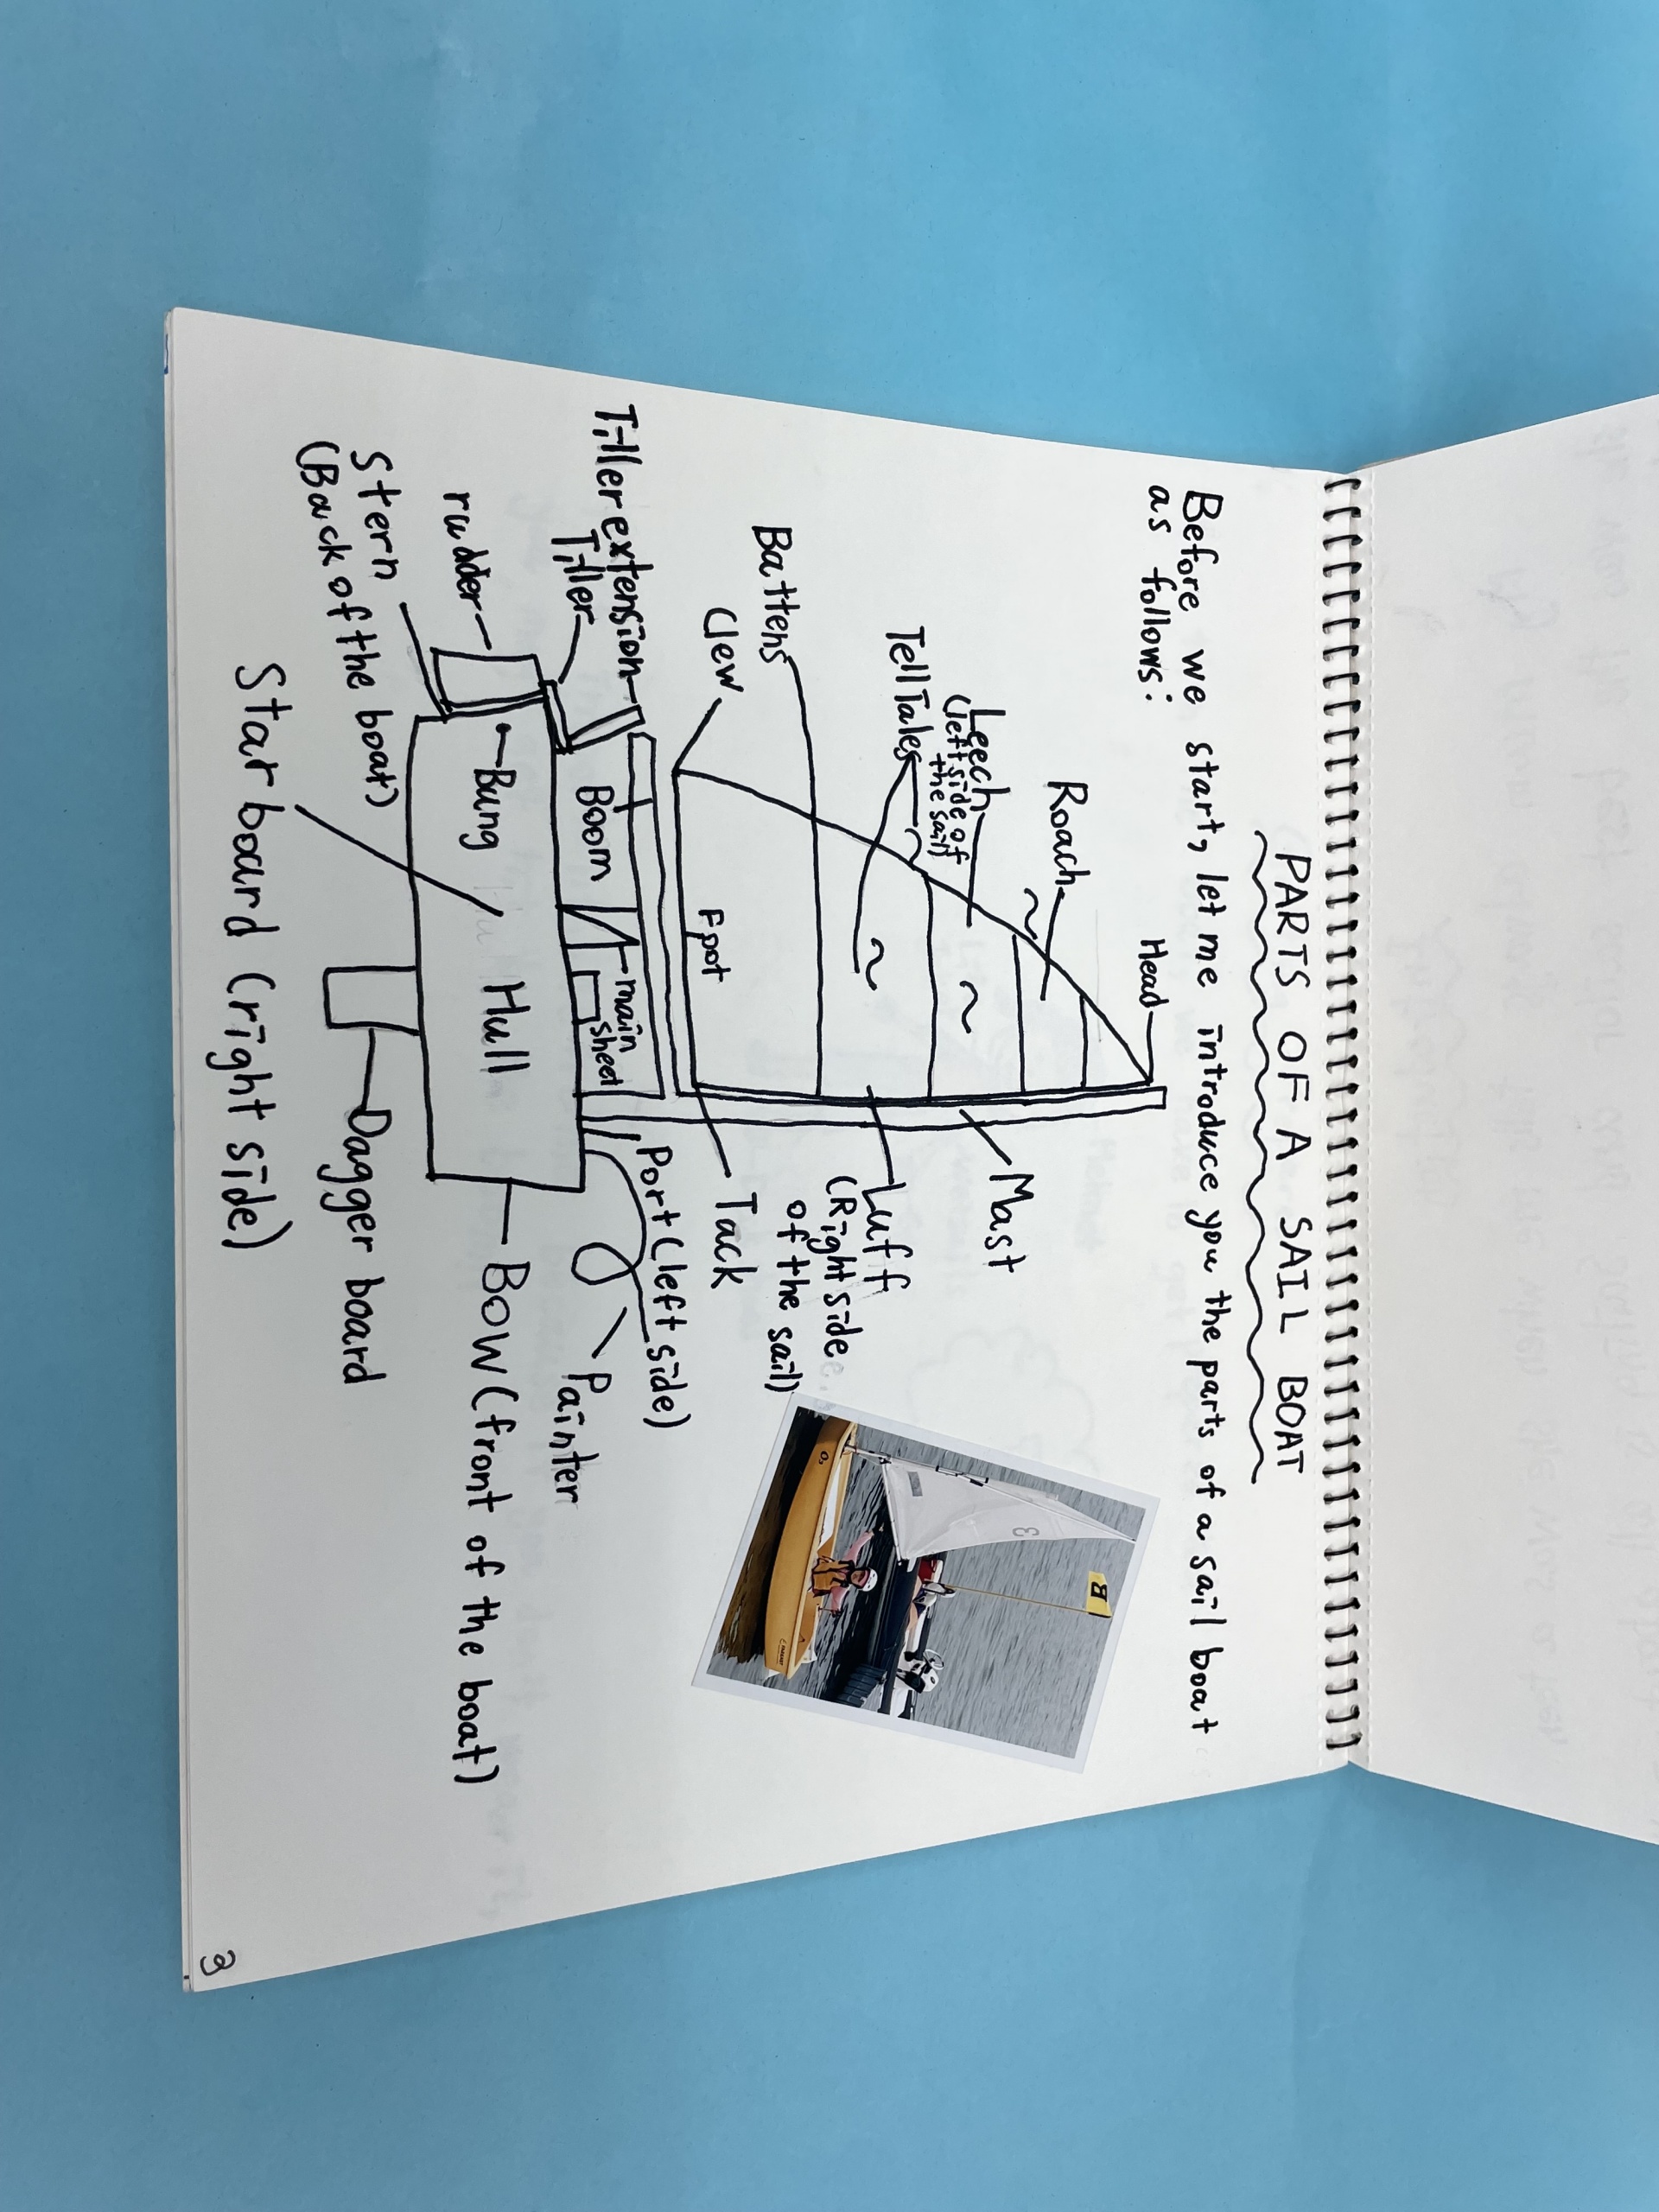 PARTS OF A SAIL BOAT
Before we start, let me introduce you the parts of a sail boat
as follows:
Head
Roach
Leech
(left side of
the sail)
Tell Tales
Mast
Luff
(Right side
of the sail)
Battens
Clew
Foot
Tack
Tiller extension
Tiller
Boom
main
sheet
Port (left side)
Painter
rudder
Bung
Hull
BOW (front of the boat)
Stern
(Back of the boat)
Dagger board
Star board (right side)
3
B
3